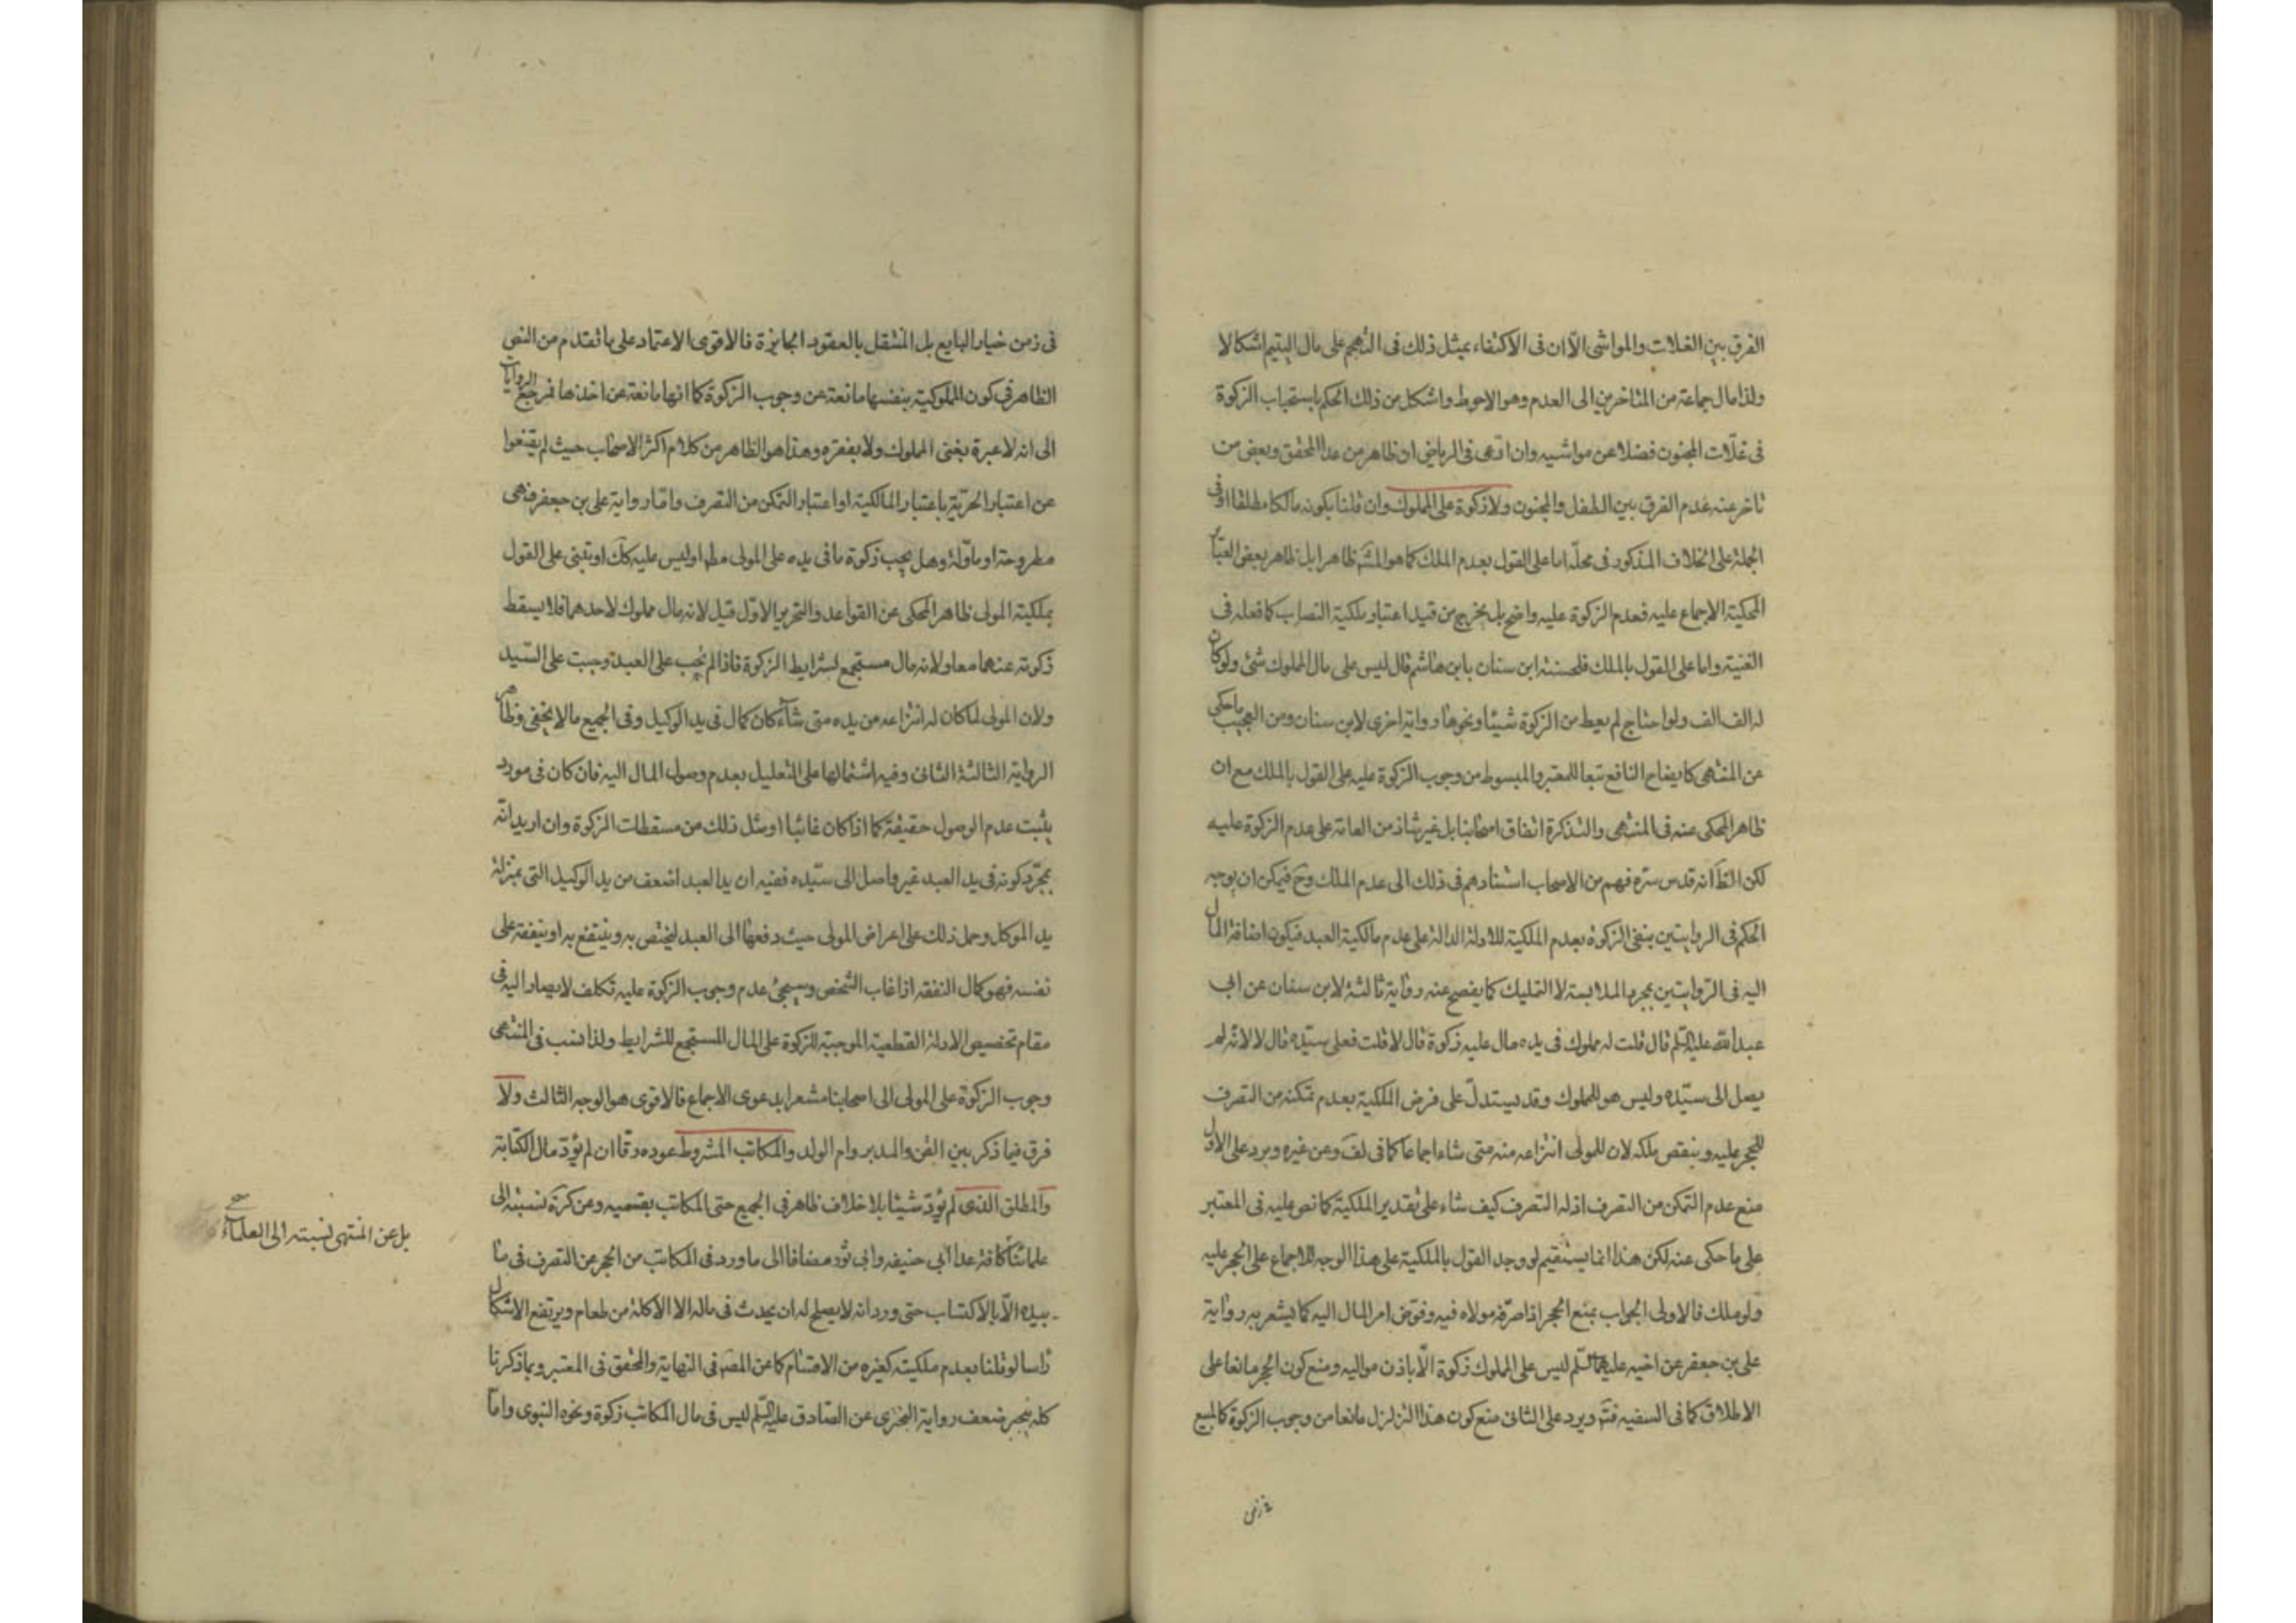 الفرق بين الغلات والمواشى الا ان فى الاكتفاء بمثل ذلك فى التهجم على مال اليتيم اشكالا
ولذا مال جماعة من المتاخرين الى العدم وهو الاحوط واشكل من ذلك الحكم باستحباب الزكوة
فى غلّات المجنون فضلا عن مواشيه وان ادّعى فى الرياض ان ظاهر من عدا المحقق وبعض من
تاخر عنه عدم الفرق بين الطفل والمجنون ولا زكوة على المملوك وان قلنا بكونه مالكا مطلقا او فى
الجملة على الخلاف المذكور فى محلّه اما على القول بعدم الملك كما هو المشَ ظاهرا بل ظاهر بعض العبائر
المحكية الاجماع عليه فعدم الزكوة عليه واضح بل يخرج من قيد اعتبار ملكية النصاب كما فعله فى
الغنية واما على القول بالملك فلحسنة ابن سنان بابن هاشم قال ليس على مال المملوك شئ ولو كان
له الف الف ولو احتاج لم يعط من الزكوة شيئا ونحوها رواية اخرى لابن سنان ومن العجيب ما حكى
عن المنتهى كايضاح النافع تبعا للمعتبر والمبسوط من وجوب الزكوة عليه على القول بالملك مع ان
ظاهر المحكى عنه فى المنتهى والتذكرة اتفاق اصحابنا بل غير شاذ من العامة على عدم الزكوة عليه
لكن الظَ انه قدس سره فهم من الاصحاب استنادهم فى ذلك الى عدم الملك وحَ فيمكن ان يوجه
الحكم فى الروايتين بنفى الزكوة بعدم الملكية للادلة الدالة على عدم مالكية العبد فيكون اضافة المال
اليه فى الروايتين بمجرد الملابسة لا التمليك كما يفصح عنه رواية ثالثة لابن سنان عن ابى
عبدالله عليه السلم قال قلت له مملوك فى يده مال عليه زكوة قال لا قلت فعلى سيّده قال لا لانه لم
يصل الى سيّده وليس هو للمملوك وقد يستدلّ على فرض الملكية بعدم تمكنه من التصرف
للحجر عليه وبنقص ملكه لان للمولى انتزاعه منه متى شاء اجماعا كما فى لفَ وعن غيره ويرد على الاول
منع عدم التمكن من التصرف اذ له التصرف كيف شاء على تقدير الملكية كما نص عليه فى المعتبر
على ما حكى عنه لكن هذا انما يستقيم لو وجد القول بالملكية على هذا الوجه للاجماع على الحجر عليه
ولو ملك فالاولى الجواب بمنع الحجر اذا صرّفه مولاه فيه وفوّض امر المال اليه كما يشعر به رواية
على بن جعفر عن اخيه عليهما السلم ليس على المملوك زكوة الّا باذن مواليه ومنع كون الحجر مانعا على
الاطلاق كما فى السفيه فتَم ويرد على الثانى منع كون هذا التزلزل مانعا من وجوب الزكوة كالمبيع
فى زمن
فى زمن خيار البايع بل المنتقل بالعقود الجايزة فالاقوى الاعتماد على ما تقدم من النص
الظاهر فى كون المملوكية بنفسها مانعة عن وجوب الزكوة كما انها مانعة عن اخذها فمرجع الروايات
الى انه لا عبرة بغنى المملوك ولا بفقره وهذا هو الظاهر من كلام اكثر الاصحاب حيث لم يقنعوا
عن اعتبار الحرّيّة باعتبار المالكية او اعتبار التمكن من التصرف وامّا رواية على بن جعفر فهى
مطروحة او ماوّلة وهل يجب زكوة ما فى يده على المولى مطَ او ليس عليه ككَ او تبتنى على القول
بملكية المولى ظاهر المحكى عن القواعد والتحرير الاوّل قيل لانه مال مملوك لاحدهما فلا يسقط
زكوته عنهما معا ولانه مال مستجمع لشرايط الزكوة فاذا لم تجب على العبد وجبت على السّيد
ولان المولى لما كان له انتزاعه من يده متى شاء كان كمال فى يد الوكيل وفى الجميع ما لا يخفى وظاهر
الرواية الثالثة الثانى وفيه اشتمالها على التعليل بعدم وصول المال اليه فان كان فى مورد
يثبت عدم الوصول حقيقة كما اذا كان غائبا او مثل ذلك من مسقطات الزكوة وان اريد انّه
بمجرّد كونه فى يد العبد غير واصل الى سيّده ففيه ان يد العبد اضعف من يد الوكيل التى بمنزلة
يد الموكل وحمل ذلك على اعراض المولى حيث دفعها الى العبد ليختص به وينتفع به او ينفقه على
نفسه فهو كمال النفقه اذا غاب الشخص وسيجئ عدم وجوب الزكوة عليه تكلف لا يصار اليه فى
مقام تخصيص الادلة القطعية الموجبة للزكوة على المال المستجمع للشرايط ولذا نسب فى المنتهى
وجوب الزكوة على المولى الى اصحابنا مشعرا بدعوى الاجماع فالاقوى هو الوجه الثالث ولا
فرق فيما ذكر بين القن والمدبر وام الولد والمكاتب المشروط عوده رقّا ان لم يؤدّ مال الكتابة
والمطلق الذى لم يؤدّ شيئا بلا خلاف ظاهر فى الجميع حتى المكاتب بقسميه وعن كرَه نسبته الى
علمائنا كافة عدا ابى حنيفه وابى ثور مضافا الى ما ورد فى المكاتب من الحجر عن التصرف فى ما
بيده الّا بالاكتساب حتى ورد انه لا يصلح له ان يحدث فى ماله الا الاكلة من طعام ويرتفع الاشكال
راسا لو قلنا بعدم ملكيته كغيره من الاقسام كما عن المصَ فى النهاية والمحقق فى المعتبر وبما ذكرنا
كله ينجبر ضعف رواية البخترى عن الصّادق عليه السلم ليس فى مال المكاتب زكوة ونحوه النبوى وامّا
بل عن المنتهى نسبته الى العلماء